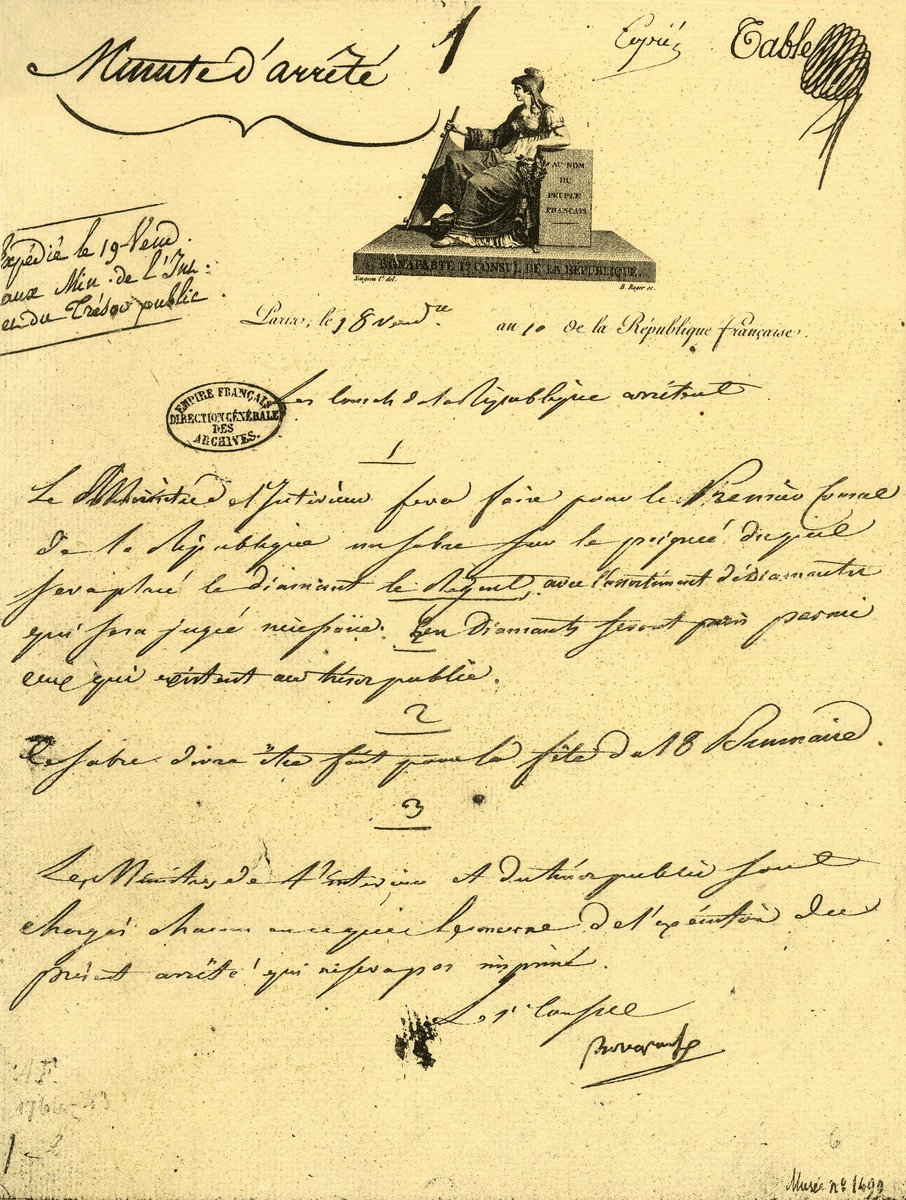 Minute d'arrêté
1
Table
AU NOM
DU
PEUPLE
FRANÇAIS
BONAPARTE 1er CONSUL DE LA REPUBLIQUE
Naigeon
del.
B. Roger sc.
Expédié le 19 Vend.
aux Min. de l'Int.
et du Trésor public
Paris, le 18 Vendre an 10 de la République française.
EMPIRE FRANÇAIS
DIRECTION GÉNÉRALE
DES
ARCHIVES.
Les Consuls de la République arrêtent
1
Le Ministre de l'Intérieur fera faire pour le Premier Consul
de la République un sabre sur la poignée duquel
sera placé le diamant le Régent, avec l'assortiment de Diamants
qui sera jugé nécessaire. Ces Diamants seront pris parmi
ceux qui existent au trésor public.
2
Ce sabre devra être fait pour la fête du 18 Brumaire.
3
Les Ministres de l'intérieur et du trésor public sont
chargés chacun en ce qui le concerne de l'exécution du
présent arrêté qui ne sera pas imprimé.
Le 1er Consul
Bonaparte
Musée no 1499